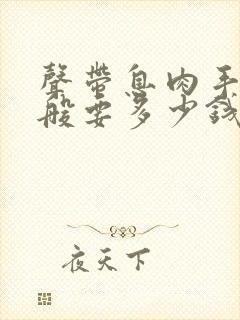 聲帶息肉手
般要多少錢
夜天下